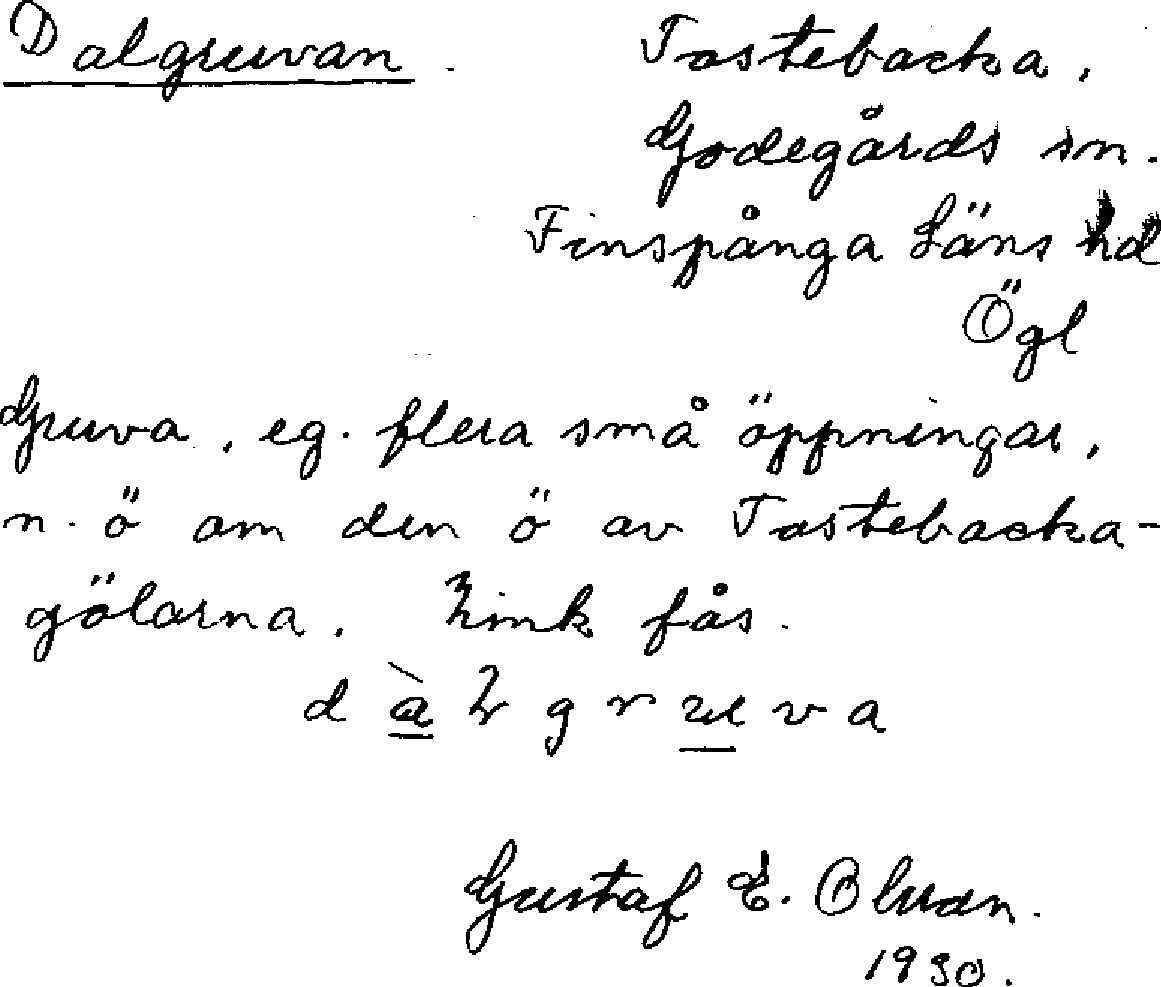 Dalgruvan. Tostebacka,
Godegårds sn.
Finspånga Läns hd
Ögl
Gruva, eg. flera små öppningar,
n. ö om den ö av Tostebacka-
gölarna. Zink fås.
d
g r u v a
Gustaf E. Olson.
1930.